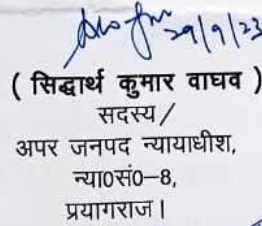 29/9/23
( सिद्धार्थ कुमार वाघव )
सदस्य /
अपर जनपद न्यायाधीश,
न्या0सं0–8,
प्रयागराज।